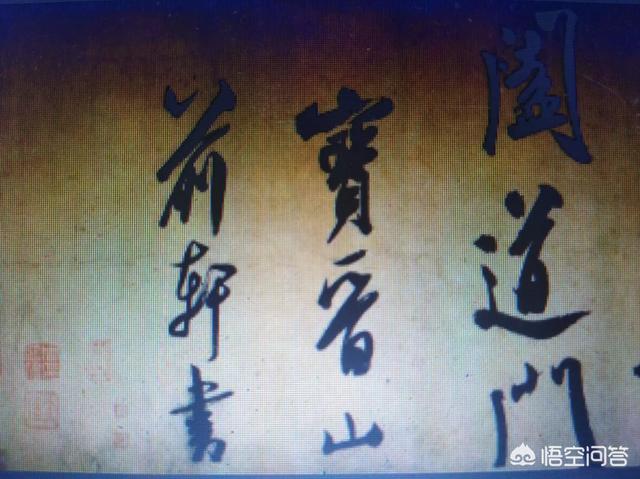 闔道門
寶晉山
前軒書
悟空问答